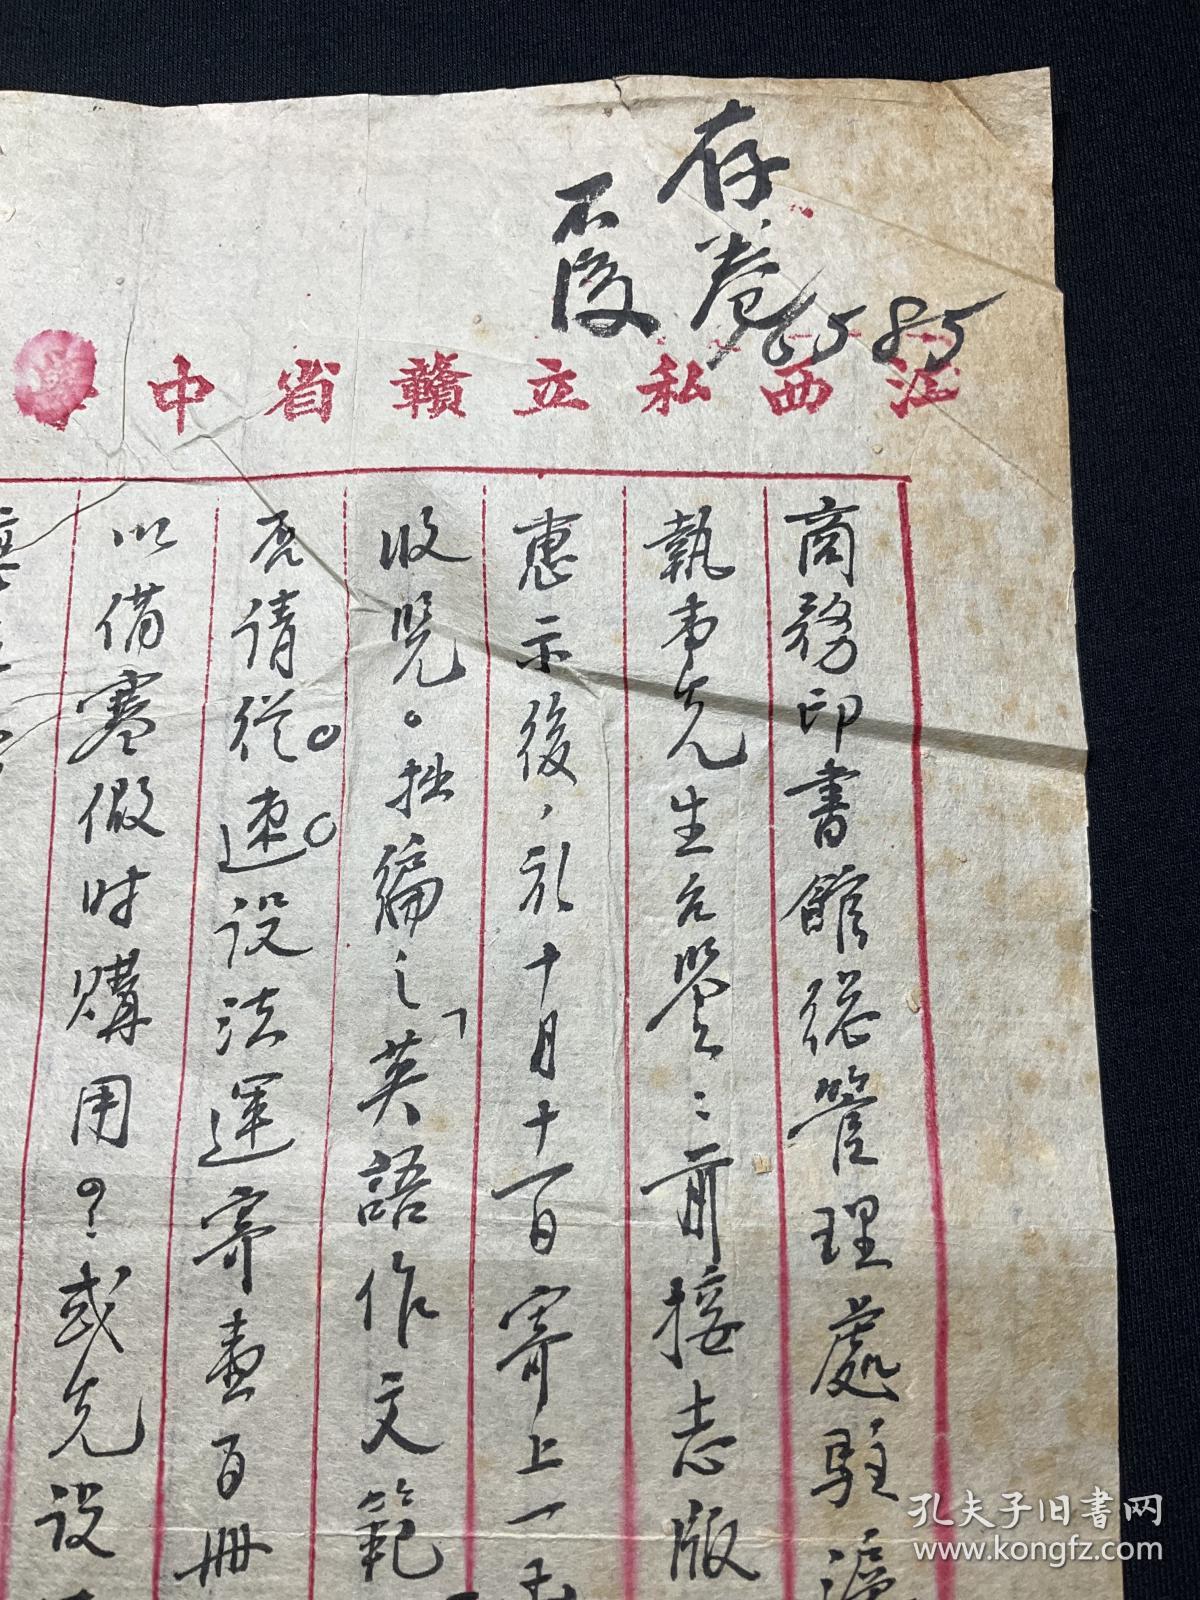 存卷
不復
6585
江西私立贛省中學
商務印書館總管理處駐滬
執事先生台鑒：前接志版
惠示後，於十月十一日寄上一
收覽。拙編之「英語作文範
請從速設法運寄壹百冊
以備寒假時購用？或先設
孔夫子旧书网
www.kongfz.com